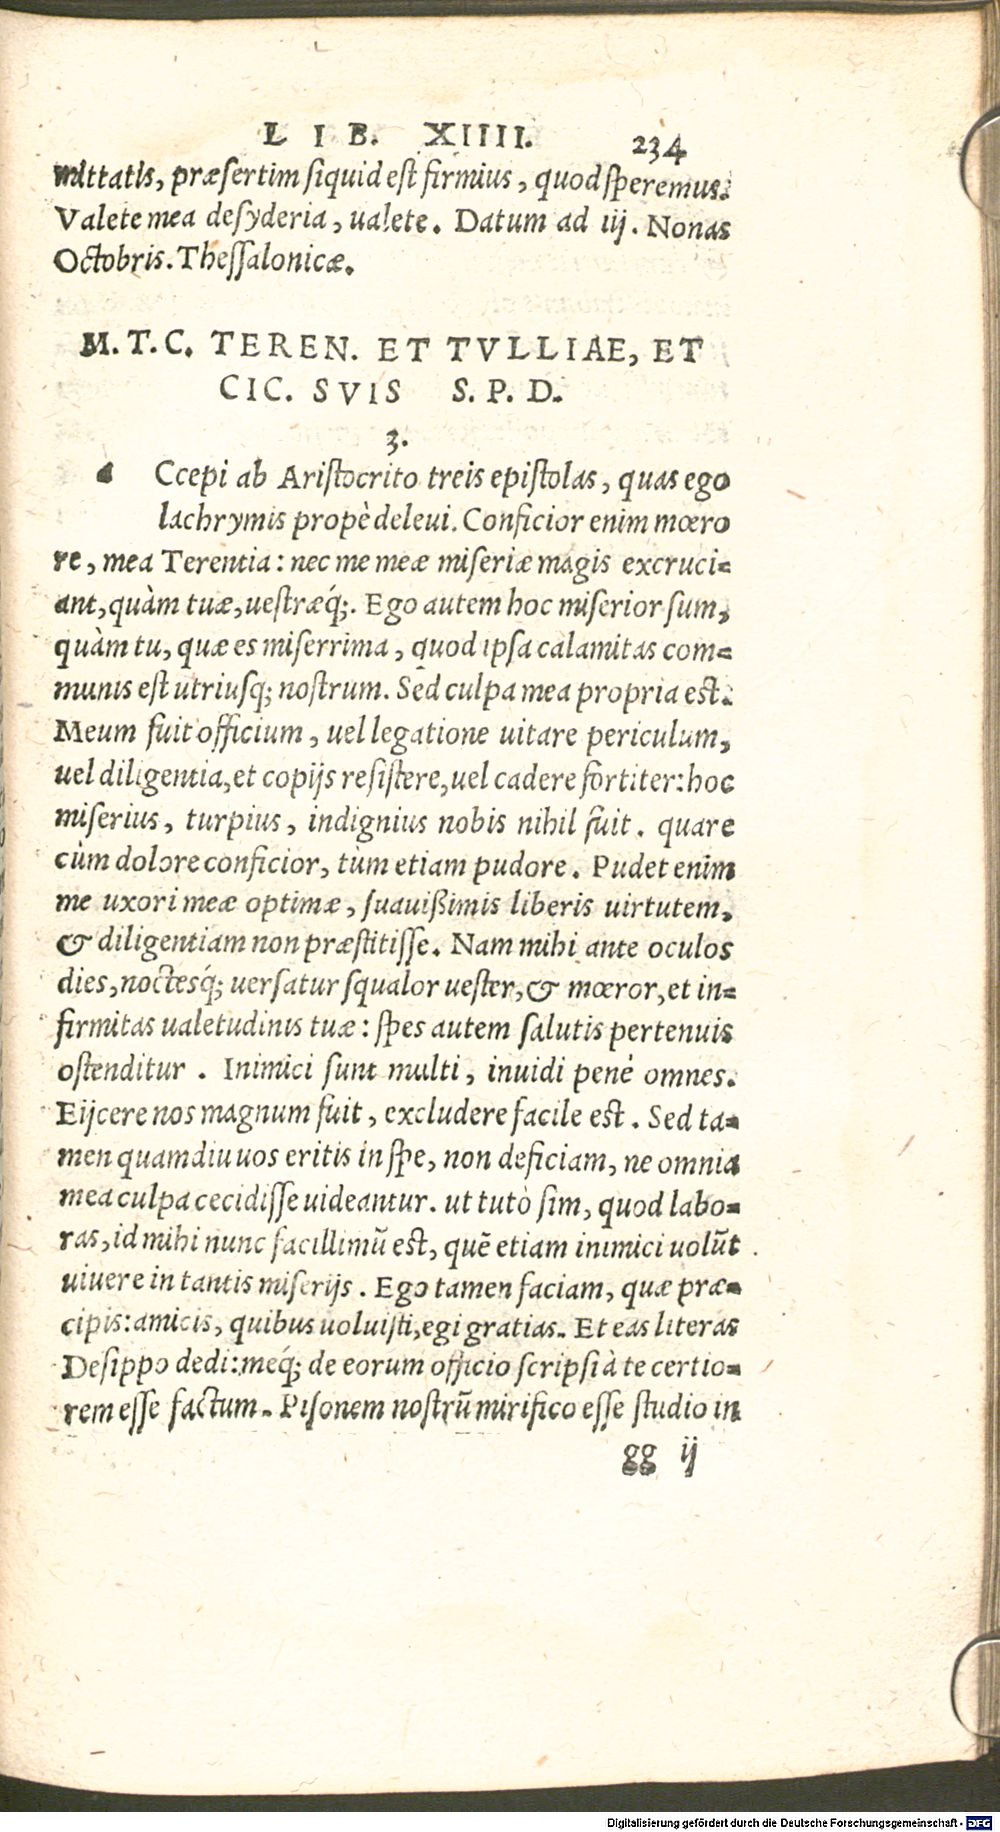 LIB. XIIII. 234
mittatis, præsertim siquid est firmius, quod speremus.
Valete mea desyderia, ualete. Datum ad iij. Nonas
Octobris. Thessalonicæ.
M. T. C. TEREN. ET TVLLIAE, ET
CIC. SVIS S. P. D.
3.
a Ccepi ab Aristocrito treis epistolas, quas ego
lachrymis propè deleui. Conficior enim mœro
re, mea Terentia: nec me meæ miseriæ magis excruci=
ant, quàm tuæ, uestræq́;. Ego autem hoc miserior sum,
quàm tu, quæ es miserrima, quod ipsa calamitas com=
munis est utriusq; nostrum. Sed culpa mea propria est.
Meum fuit officium, uel legatione uitare periculum,
uel diligentia, et copijs resistere, uel cadere fortiter: hoc
miserius, turpius, indignius nobis nihil fuit. quare
cùm dolore conficior, tùm etiam pudore. Pudet enim
me uxori meæ optimæ, suauißimis liberis uirtutem,
& diligentiam non præstitisse. Nam mihi ante oculos
dies, noctesq́; uersatur squalor uester, & mœror, et in=
firmitas ualetudinis tuæ: spes autem salutis pertenuis
ostenditur. Inimici sunt multi, inuidi penè omnes.
Eijcere nos magnum fuit, excludere facile est. Sed ta=
men quamdiu uos eritis in spe, non deficiam, ne omnia
mea culpa cecidisse uideantur. ut tutò sim, quod labo=
ras, id mihi nunc facillimũ est, quẽ etiam inimici uolũt
uiuere in tantis miserijs. Ego tamen faciam, quæ præ=
cipis: amicis, quibus uoluisti, egi gratias. Et eas literas
Desippo dedi: meq́; de eorum officio scripsi à te certio=
rem esse factum. Pisonem nostrũ mirifico esse studio in
gg ij
Digitalisierung gefördert durch die Deutsche Forschungsgemeinschaft - DFG